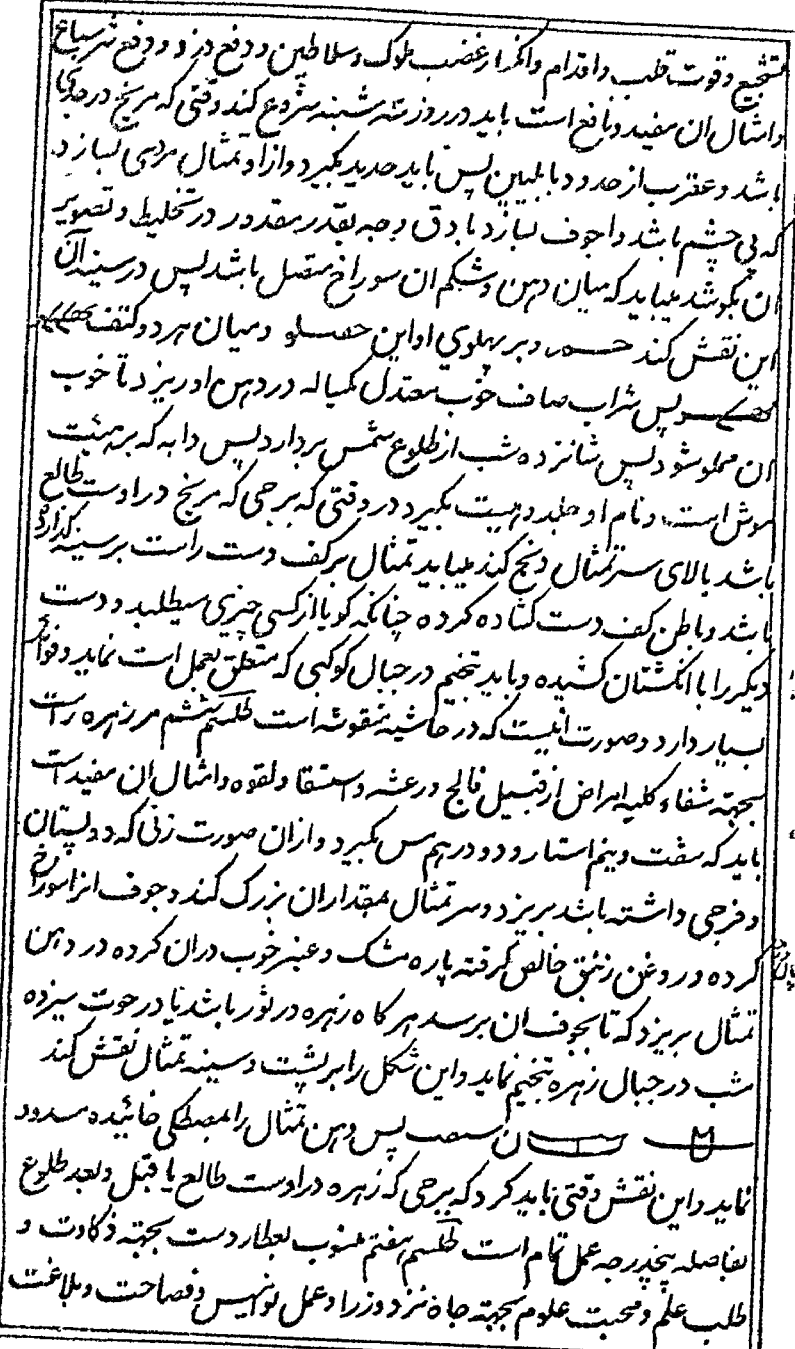 تشجیع و قوت قلب و اقدام و انحدار غضب ملوک و سلاطین و دفع دزد و دفع شر سباع
و امثال ان مفید و نافع است باید در روز سه شنبه شروع کند وقتی که مریخ در جدی
باشد و عقرب از حدود بابلیین پس باید حدید بگیرد و از او تمثال مردی بسازد
که بی چشم باشد و اجوف بسازد بادق وجه بقدر مقدور در تخلیط و تصویر
ان بکوشد میباید که میان دهن و شکم ان سوراخ متصل باشد پس در سینه آن
این نقش کند و بر پهلوی او این و میان هر دو کتف
پس شراب صاف خوب معتدل یکپیاله در دهن او ریزد تا خوب
ان مملو شود پس شانزده شب از طلوع شمس بردارد پس دابه که بر هیئت
موش است و نام او خلد بگیرد در وقتی که برجی که مریخ در اوست طالع
باشد بالای سر تمثال ذبح کند میباید تمثال بر کف دست راست بر سینه گذارده
باشد و باطن کف دست کشاده کرده چنانکه گویا از کسی چیزی میطلبد و دست
دیگر را با انگشتان کشیده و باید تنجیم در حبال کوکبی که متعلق بعمل است نماید و فواید
بسیار دارد و صورت اینست که در حاشیه منقوشه است طلسم ششم مر زهره راست
بجهته شفاء کلیه امراض از قبیل فالج و رعشه و استسقا و لقوه و امثال ان مفید است
باید که هفت و نیم استار و دو درهم مس بگیرد و از ان صورت زنی که دو پستان
و فرجی داشته باشد بریزد و سر تمثال بمقدار ان بزرگ کند و جوف انرا سوراخ
کرده و روغن زنبق خالص گرفته پاره مشک و عنبر خوب در ان کرده در دهن
تمثال بریزد که تا بجوف ان برسد هرگاه زهره در ثور باشد یا در حوت سیزده
شب در حبال زهره تنجیم نماید و این شکل را بر پشت و سینه تمثال نقش کند
پس دهن تمثال را بمصطکی خائیده مسدود
نماید و این نقش وقتی باید کرد که برجی که زهره در اوست طالع یا قبل و بعد طلوع
بفاصله پنجدرجه عمل تمام است طلسم هفتم منسوب بعطارد است بجهته ذکاوت و
طلب علم و محبت علوم بجهته جاه نزد وزرا و عمل نوامیس و فصاحت و بلاغت